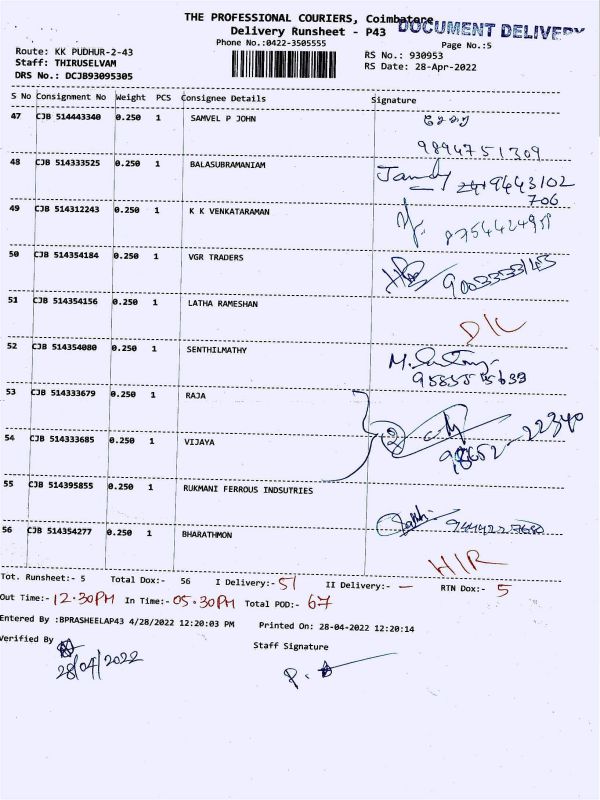 THE PROFESSIONAL COURIERS, Coimbatore
DOCUMENT DELIVERY
Delivery Runsheet - P43
Phone No.:0422-3505555
Page No.:5
Route: KK PUDHUR-2-43
RS No.: 930953
Staff: THIRUSELVAM
RS Date: 28-Apr-2022
DRS No.: DCJB93095305
S No Consignment No Weight PCS Consignee Details Signature
47 CJB 514443340 0.250 1 SAMVEL P JOHN
9894751309
48 CJB 514333525 0.250 1 BALASUBRAMANIAM
9443102
706
49 CJB 514312243 0.250 1 K K VENKATARAMAN
50 CJB 514354184 0.250 1 VGR TRADERS
51 CJB 514354156 0.250 1 LATHA RAMESHAN
D/L
52 CJB 514354080 0.250 1 SENTHILMATHY
53 CJB 514333679 0.250 1 RAJA
2
54 CJB 514333685 0.250 1 VIJAYA
98652-22340
55 CJB 514395855 0.250 1 RUKMANI FERROUS INDSUTRIES
56 CJB 514354277 0.250 1 BHARATHMON
HIR
Tot. Runsheet:- 5 Total Dox:- 56 I Delivery:- 51 II Delivery:- - RTN Dox:- 5
Out Time:- 12.30PM In Time:- 05.30PM Total POD:- 67
Entered By :BPRASHEELAP43 4/28/2022 12:20:03 PM Printed On: 28-04-2022 12:20:14
Verified By Staff Signature
28/04/2022
P.